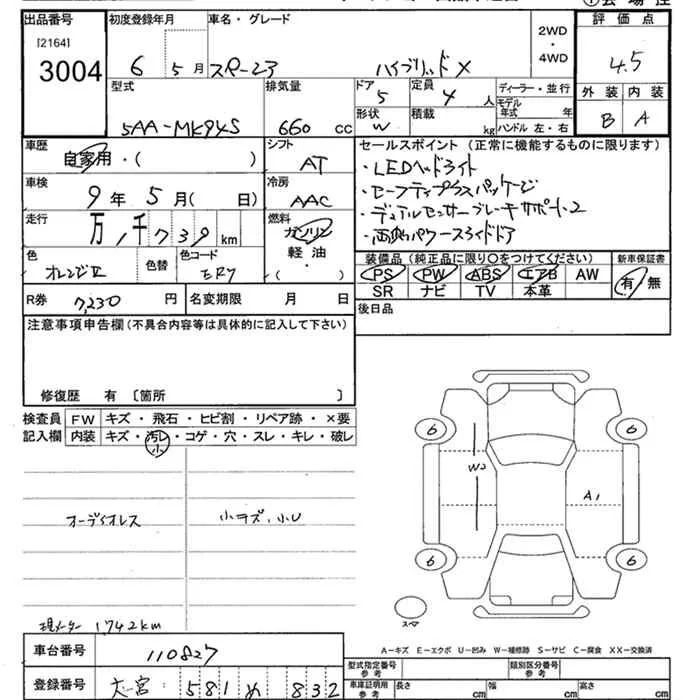 出品番号 初度登録年月 車名・グレード 2WD・4WD 評価点
[2164]
3004 6 5月 スペーシア ハイブリッドX 4.5
型式 排気量 ドア 定員 ディーラー・並行 外装 内装
5 4人 モデル年式 年 B A
5AA-MK94S 660cc 形状 W 積載 kg ハンドル 左・右
車歴 自家用・( ) シフト AT セールスポイント (正常に機能するものに限ります)
・LEDヘッドライト
車検 9年5月( 日) 冷房 AAC ・セーフティプラスパッケージ
走行 万, 千739km 燃料 ガソリン ・デュアルセンサーブレーキサポート2
軽油 ・両側パワースライドドア
色 オレンジⅡ 色替 色コード ( )
装備品 (純正品に限り○をつけてください) 新車保証書
PS PW ABS エアB AW 有・無
SR ナビ TV 本革
R券 7,230円 名変期限 月 日
後日品
注意事項申告欄 (不具合内容等は具体的に記入して下さい)
修復歴 有 〔箇所 〕
検査員 FW キズ・飛石・ヒビ割・リペア跡・×要
記入欄 内装 キズ・汚レ・コゲ・穴・スレ・キレ・破レ
小
6 6
W2
A1
オーディオレス 小キズ、小U
6 6
スペア
現メーター 1742km
A-キズ E-エクボ U-凹み W-補修跡 S-サビ C-腐食 XX-交換済
車台番号 110827
型式指定番号 参考 類別区分番号 参考
登録番号 大宮 581 め 832
車庫証明用 参考 長さ cm 幅 cm 高さ cm